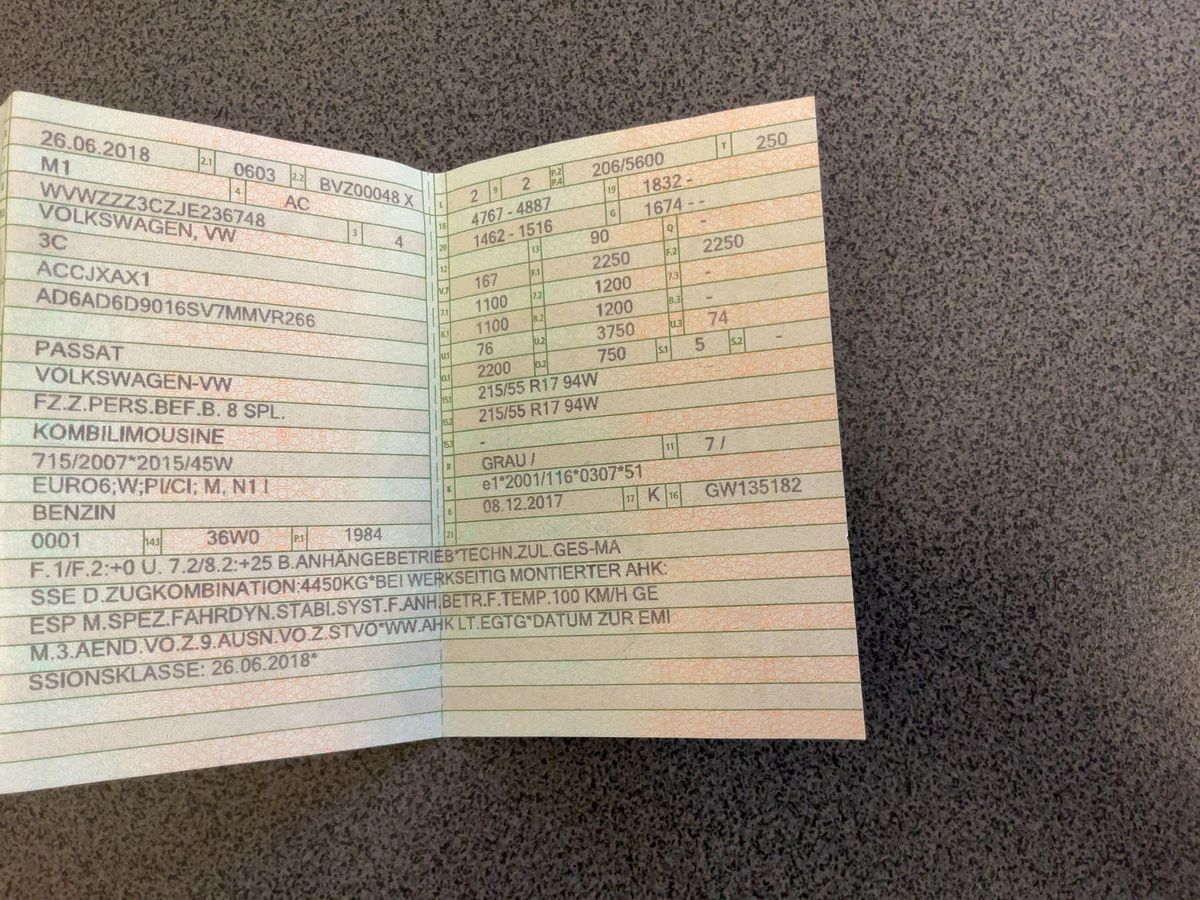 26.06.2018 2.1 0603 2.2 BVZ00048 X
M1 4 AC
WVWZZZ3CZJE236748 3 4
VOLKSWAGEN, VW
3C
ACCJXAX1
AD6AD6D9016SV7MMVR266
PASSAT
VOLKSWAGEN-VW
FZ.Z.PERS.BEF.B. 8 SPL.
KOMBILIMOUSINE
715/2007*2015/45W
EURO6;W;PI/CI; M, N1 I
BENZIN
0001 14.1 36W0 P.1 1984
L 2 9 2 P.2 P.4 206/5600 T 250
18 4767 - 4887 19 1832 -
20 1462 - 1516 G 1674 - -
12 - 13 90 Q -
V.7 167 F.1 2250 F.2 2250
7.1 1100 7.2 1200 7.3 -
8.1 1100 8.2 1200 8.3 -
U.1 76 U.2 3750 U.3 74
O.1 2200 O.2 750 S.1 5 S.2 -
15.1 215/55 R17 94W
15.2 215/55 R17 94W
15.3 -
R GRAU / 11 7 /
K e1*2001/116*0307*51
6 08.12.2017 17 K 16 GW135182
21
F.1/F.2:+0 U. 7.2/8.2:+25 B.ANHÄNGEBETRIEB*TECHN.ZUL.GES-MA
SSE D.ZUGKOMBINATION:4450KG*BEI WERKSEITIG MONTIERTER AHK:
ESP M.SPEZ.FAHRDYN.STABI.SYST.F.ANH.BETR.F.TEMP.100 KM/H GE
M.3.AEND.VO.Z.9.AUSN.VO.Z.STVO*WW.AHK LT.EGTG*DATUM ZUR EMI
SSIONSKLASSE: 26.06.2018*